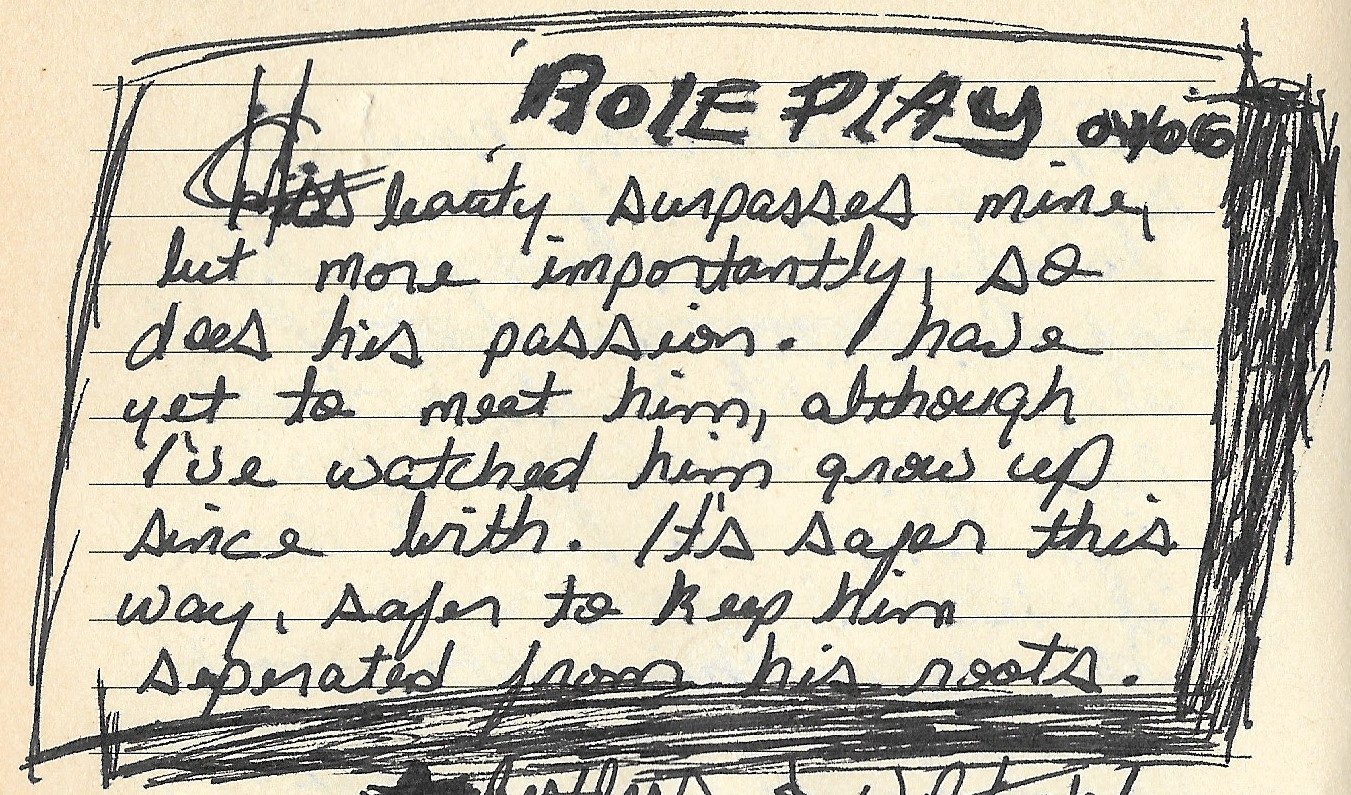 ROLE PLAY 04/06
His beauty surpasses mine,
but more importantly, so
does his passion. I have
yet to meet him, although
I've watched him grow up
since birth. It's safer this
way, safer to keep him
seperated from his roots.